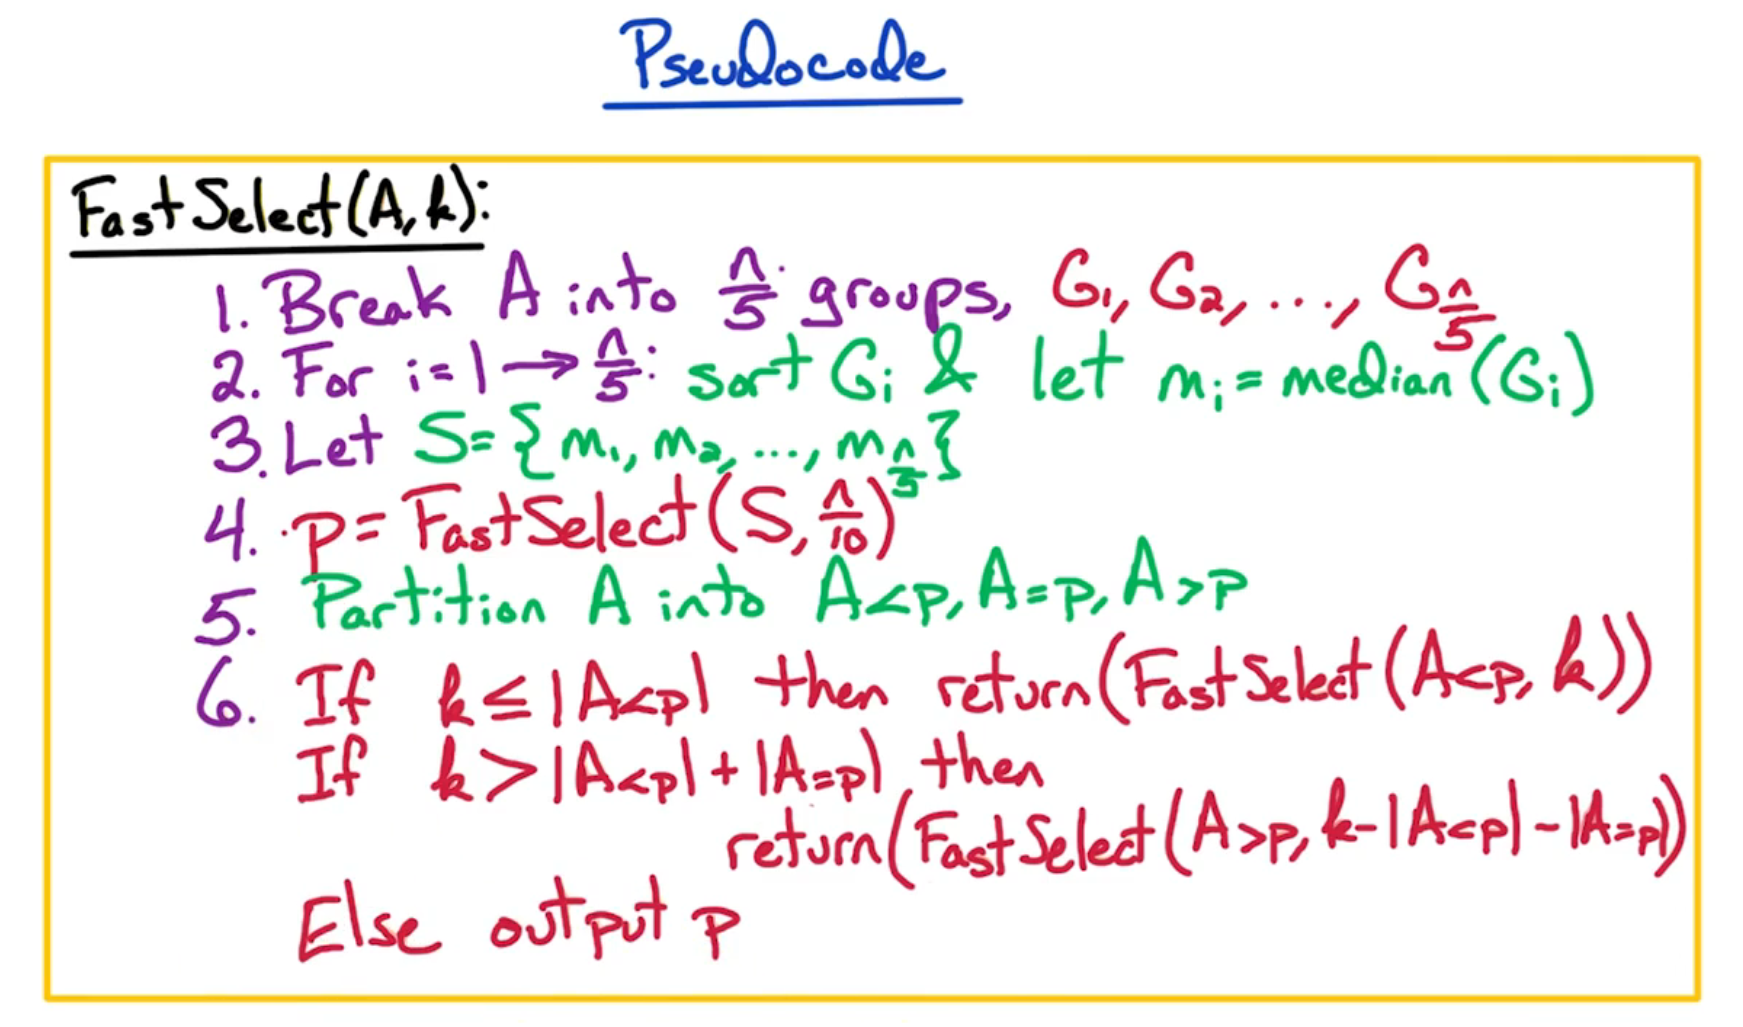 Pseudocode
FastSelect(A,k):
1. Break A into n/5 groups, G₁, G₂, ..., G_{n/5}
2. For i=1→n/5: sort Gᵢ & let mᵢ = median(Gᵢ)
3. Let S={m₁, m₂, ..., m_{n/5}}
4. p= FastSelect(S, n/10)
5. Partition A into A<p, A=p, A>p
6. If k≤|A<p| then return(FastSelect(A<p, k))
If k>|A<p|+|A=p| then
return(FastSelect(A>p, k-|A<p|-|A=p|))
Else output p